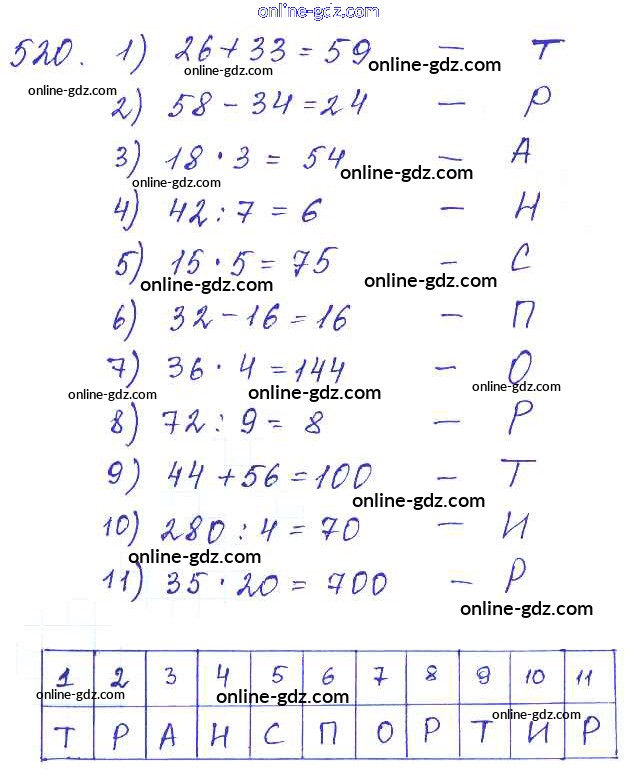 online-gdz.com
520. 1) 26 + 33 = 59 — Т
online-gdz.com online-gdz.com
online-gdz.com
2) 58 - 34 = 24 — Р
3) 18 · 3 = 54 — А
online-gdz.com online-gdz.com
4) 42 : 7 = 6 — Н
5) 15 · 5 = 75 — С
online-gdz.com online-gdz.com
6) 32 - 16 = 16 — П
7) 36 · 4 = 144 — О
online-gdz.com online-gdz.com online-gdz.com
8) 72 : 9 = 8 — Р
9) 44 + 56 = 100 — Т
online-gdz.com
10) 280 : 4 = 70 — И
online-gdz.com
11) 35 · 20 = 700 — Р
online-gdz.com
1 2 3 4 5 6 7 8 9 10 11
online-gdz.com online-gdz.com
online-gdz.com
Т Р А Н С П О Р Т И Р